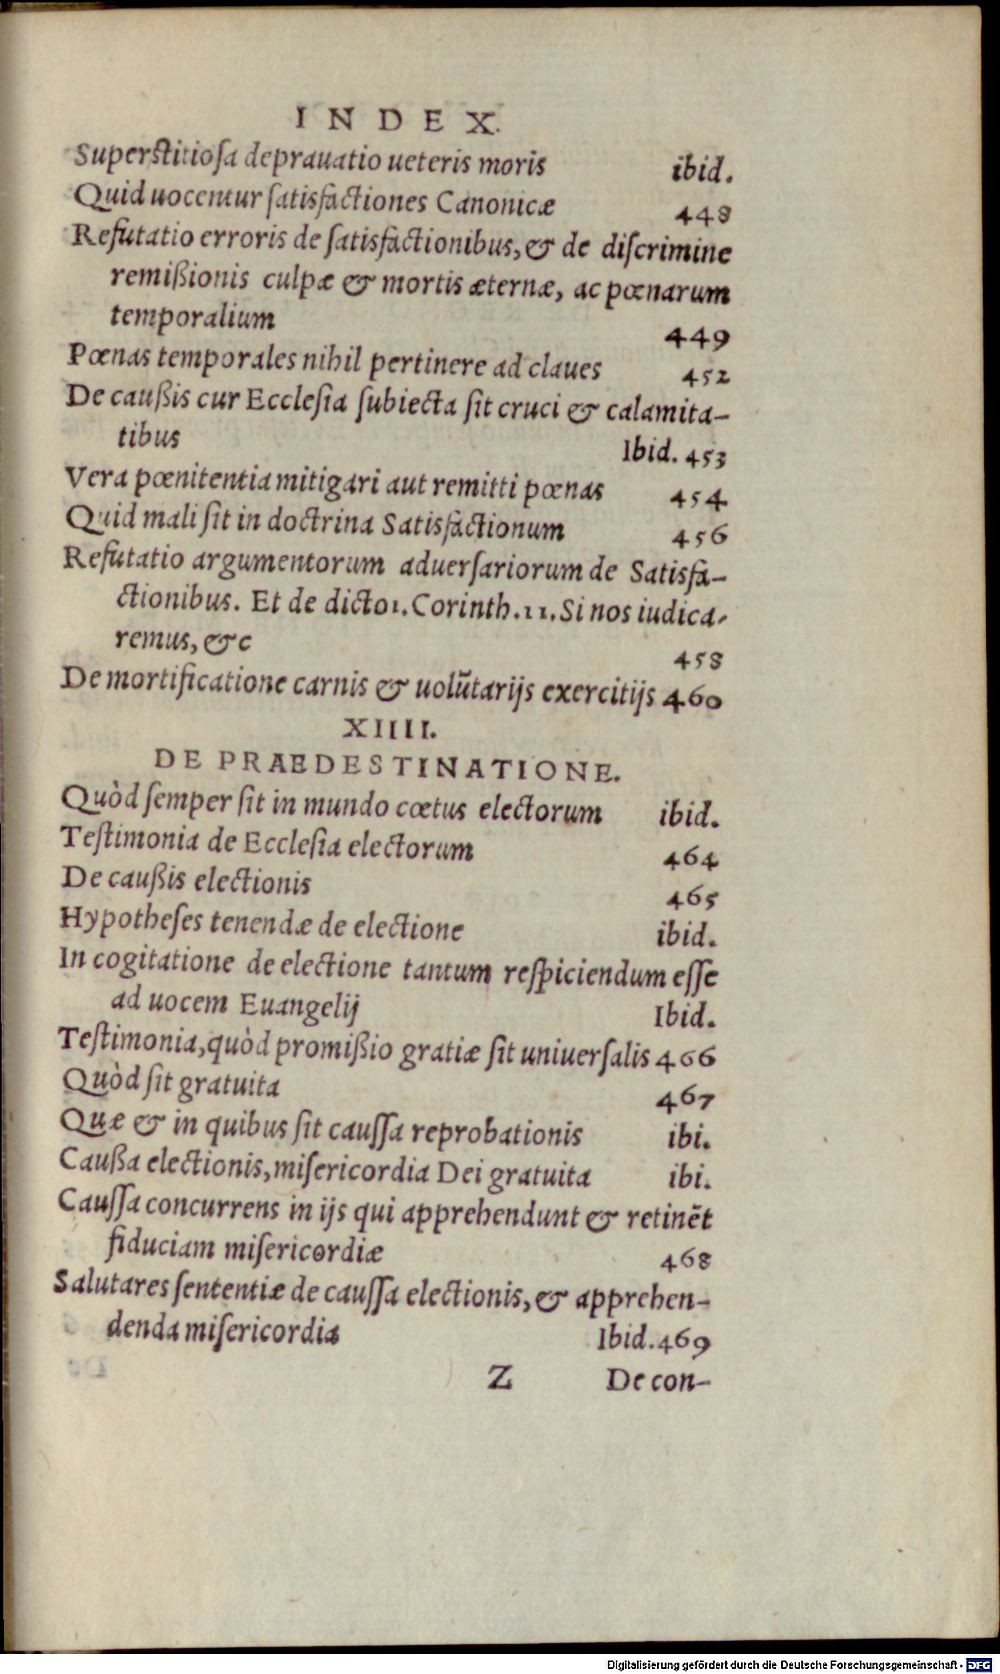 INDEX.
Superstitioſa deprauatio ueteris moris ibid.
Quid uocentur ſatisfactiones Canonicæ 448
Refutatio erroris de ſatisfactionibus, & de diſcrimine
remißionis culpæ & mortis æternæ, ac pœnarum
temporalium 449
Pœnas temporales nihil pertinere ad claues 452
De caußis cur Eccleſia ſubiecta ſit cruci & calamita-
tibus Ibid. 453
Vera pœnitentia mitigari aut remitti pœnas 454
Quid mali ſit in doctrina Satisfactionum 456
Refutatio argumentorum aduerſariorum de Satisfa-
ctionibus. Et de dicto 1. Corinth. 11. Si nos iudica-
remus, &c 458
De mortificatione carnis & uolūtarijs exercitijs 460
XIIII.
DE PRAEDESTINATIONE.
Quòd ſemper ſit in mundo cœtus electorum ibid.
Teſtimonia de Eccleſia electorum 464
De caußis electionis 465
Hypotheſes tenendæ de electione ibid.
In cogitatione de electione tantum reſpiciendum eſſe
ad uocem Euangelij Ibid.
Teſtimonia, quòd promißio gratiæ ſit uniuerſalis 466
Quòd ſit gratuita 467
Quæ & in quibus ſit cauſſa reprobationis ibi.
Caußa electionis, miſericordia Dei gratuita ibi.
Cauſſa concurrens in ijs qui apprehendunt & retinēt
fiduciam miſericordiæ 468
Salutares ſententiæ de cauſſa electionis, & apprehen-
denda miſericordia Ibid. 469
Z De con-
Digitalisierung gefördert durch die Deutsche Forschungsgemeinschaft - DFG